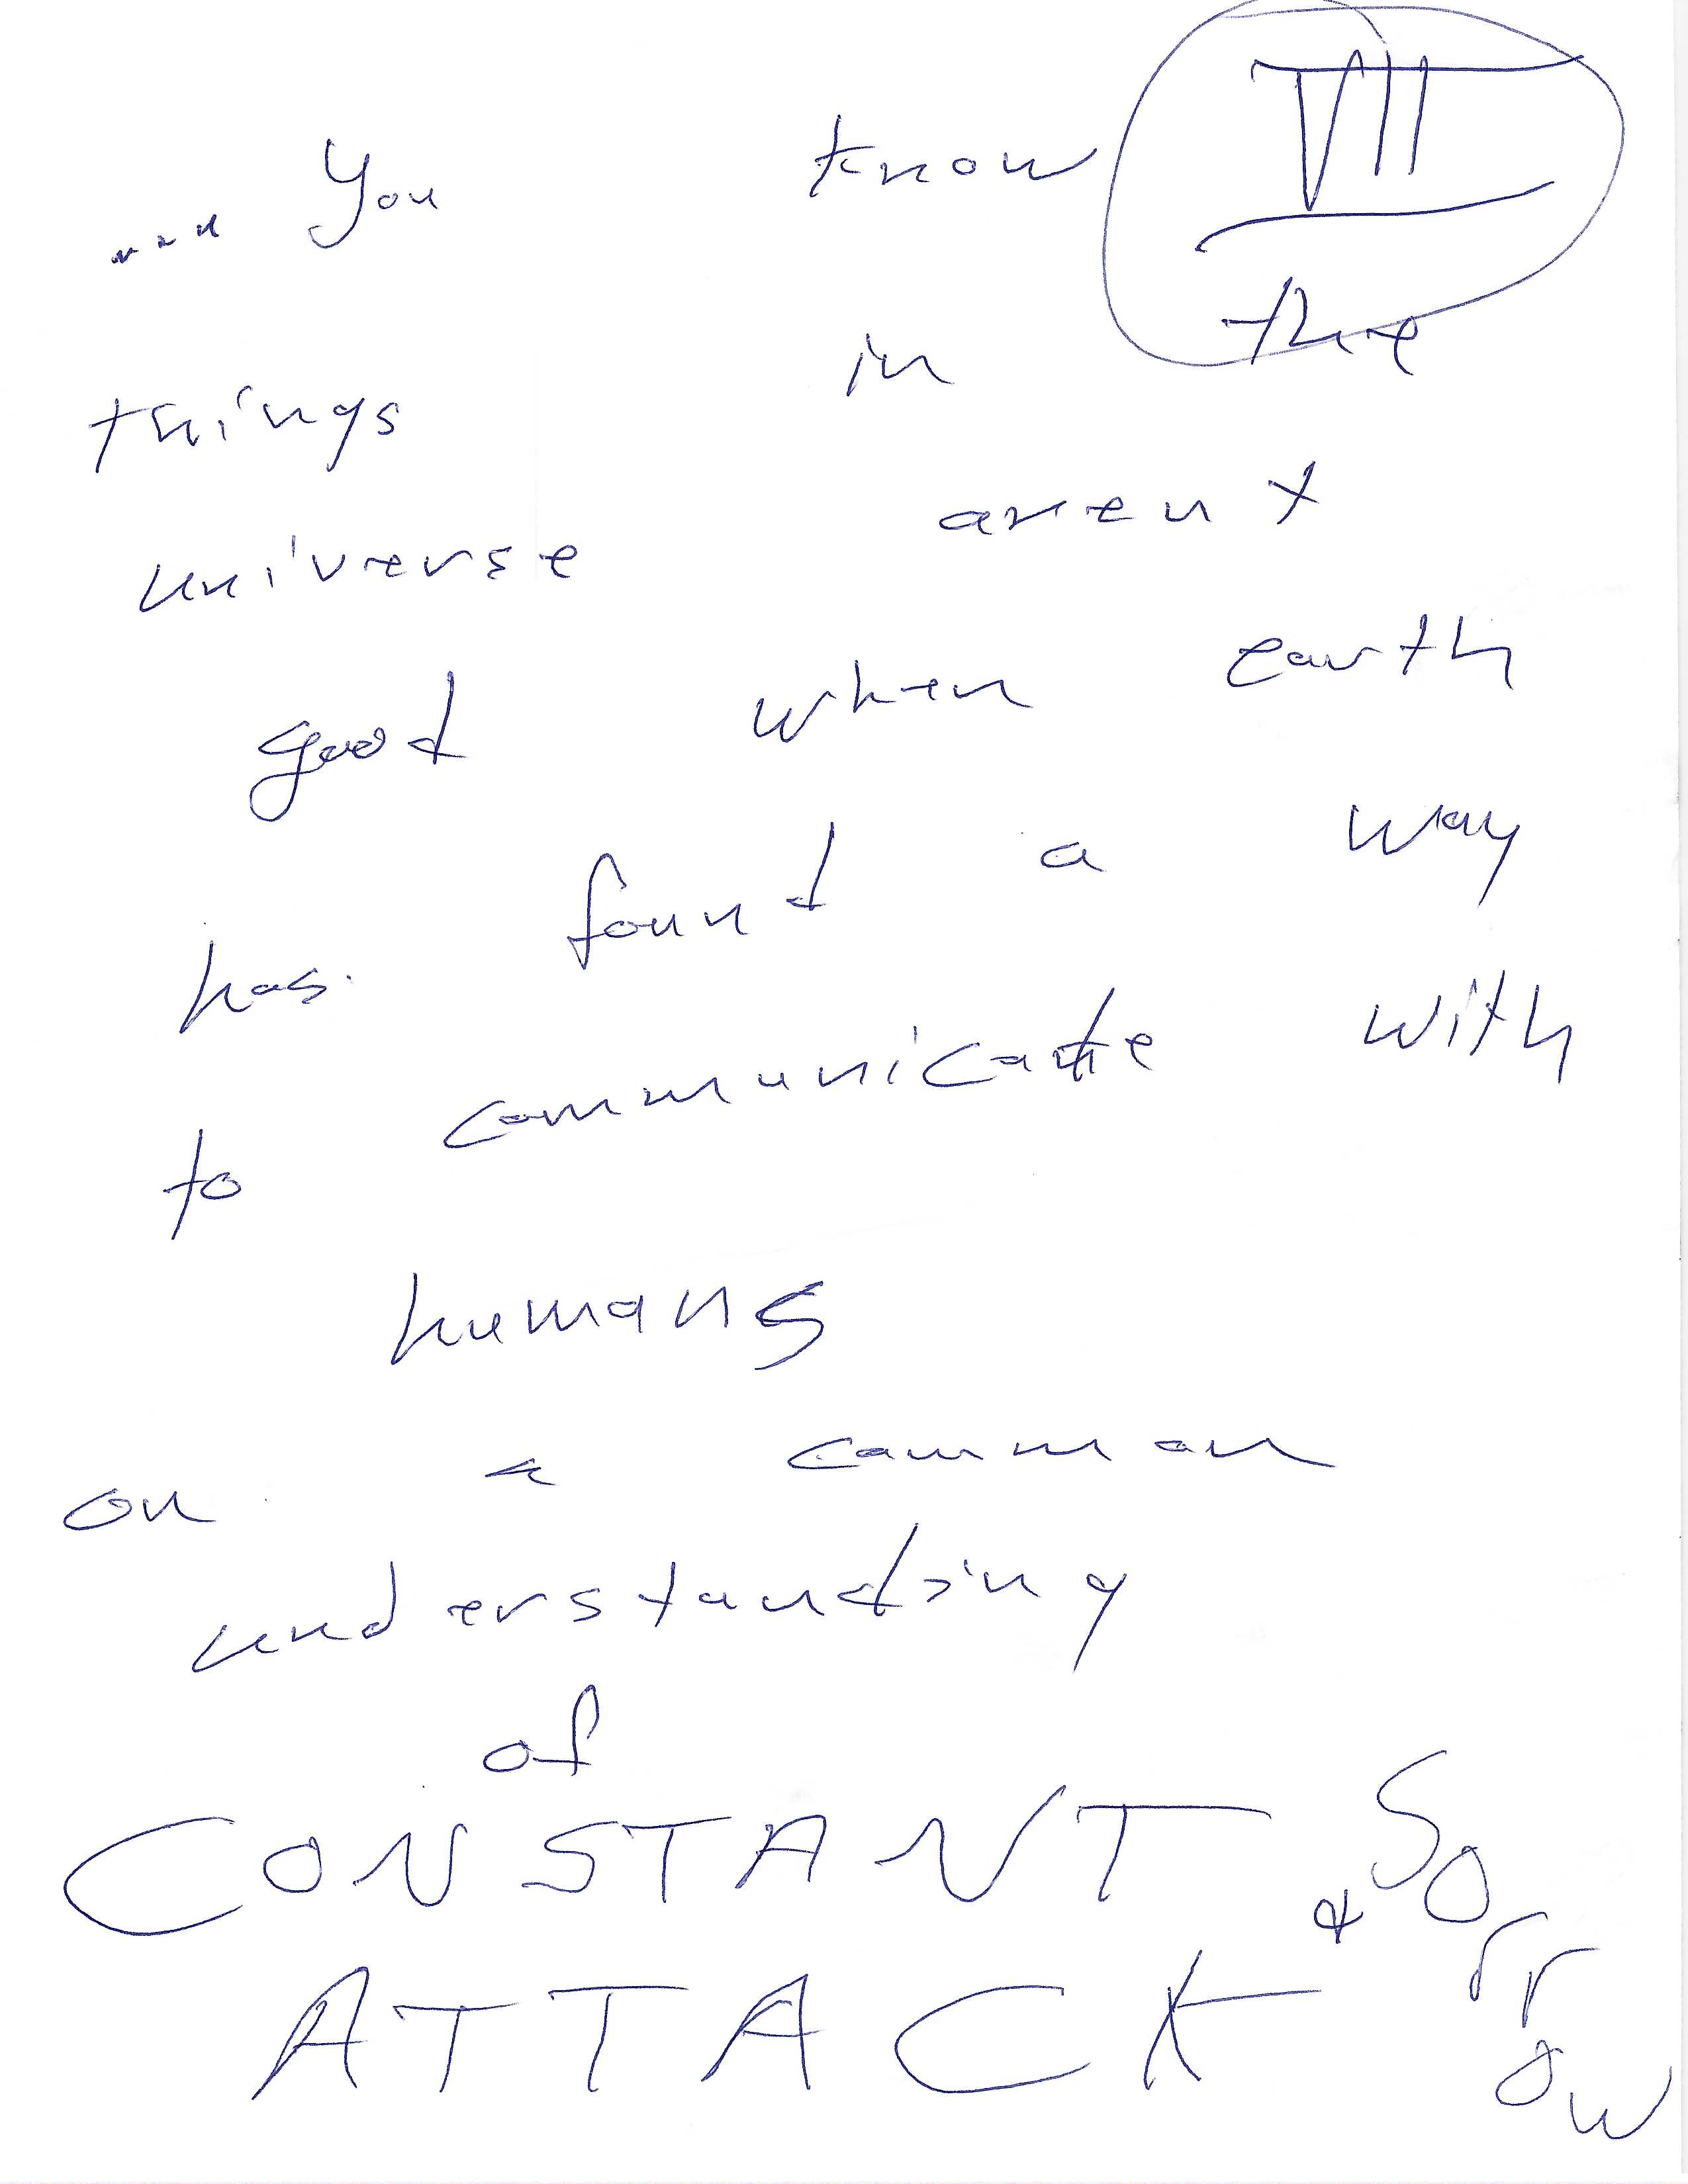 VII
... You know
things in the
universe arent
good when earth
has found a way
to communicate with
humans
on a common
understanding
of
CONSTANT & Sorrow
ATTACK